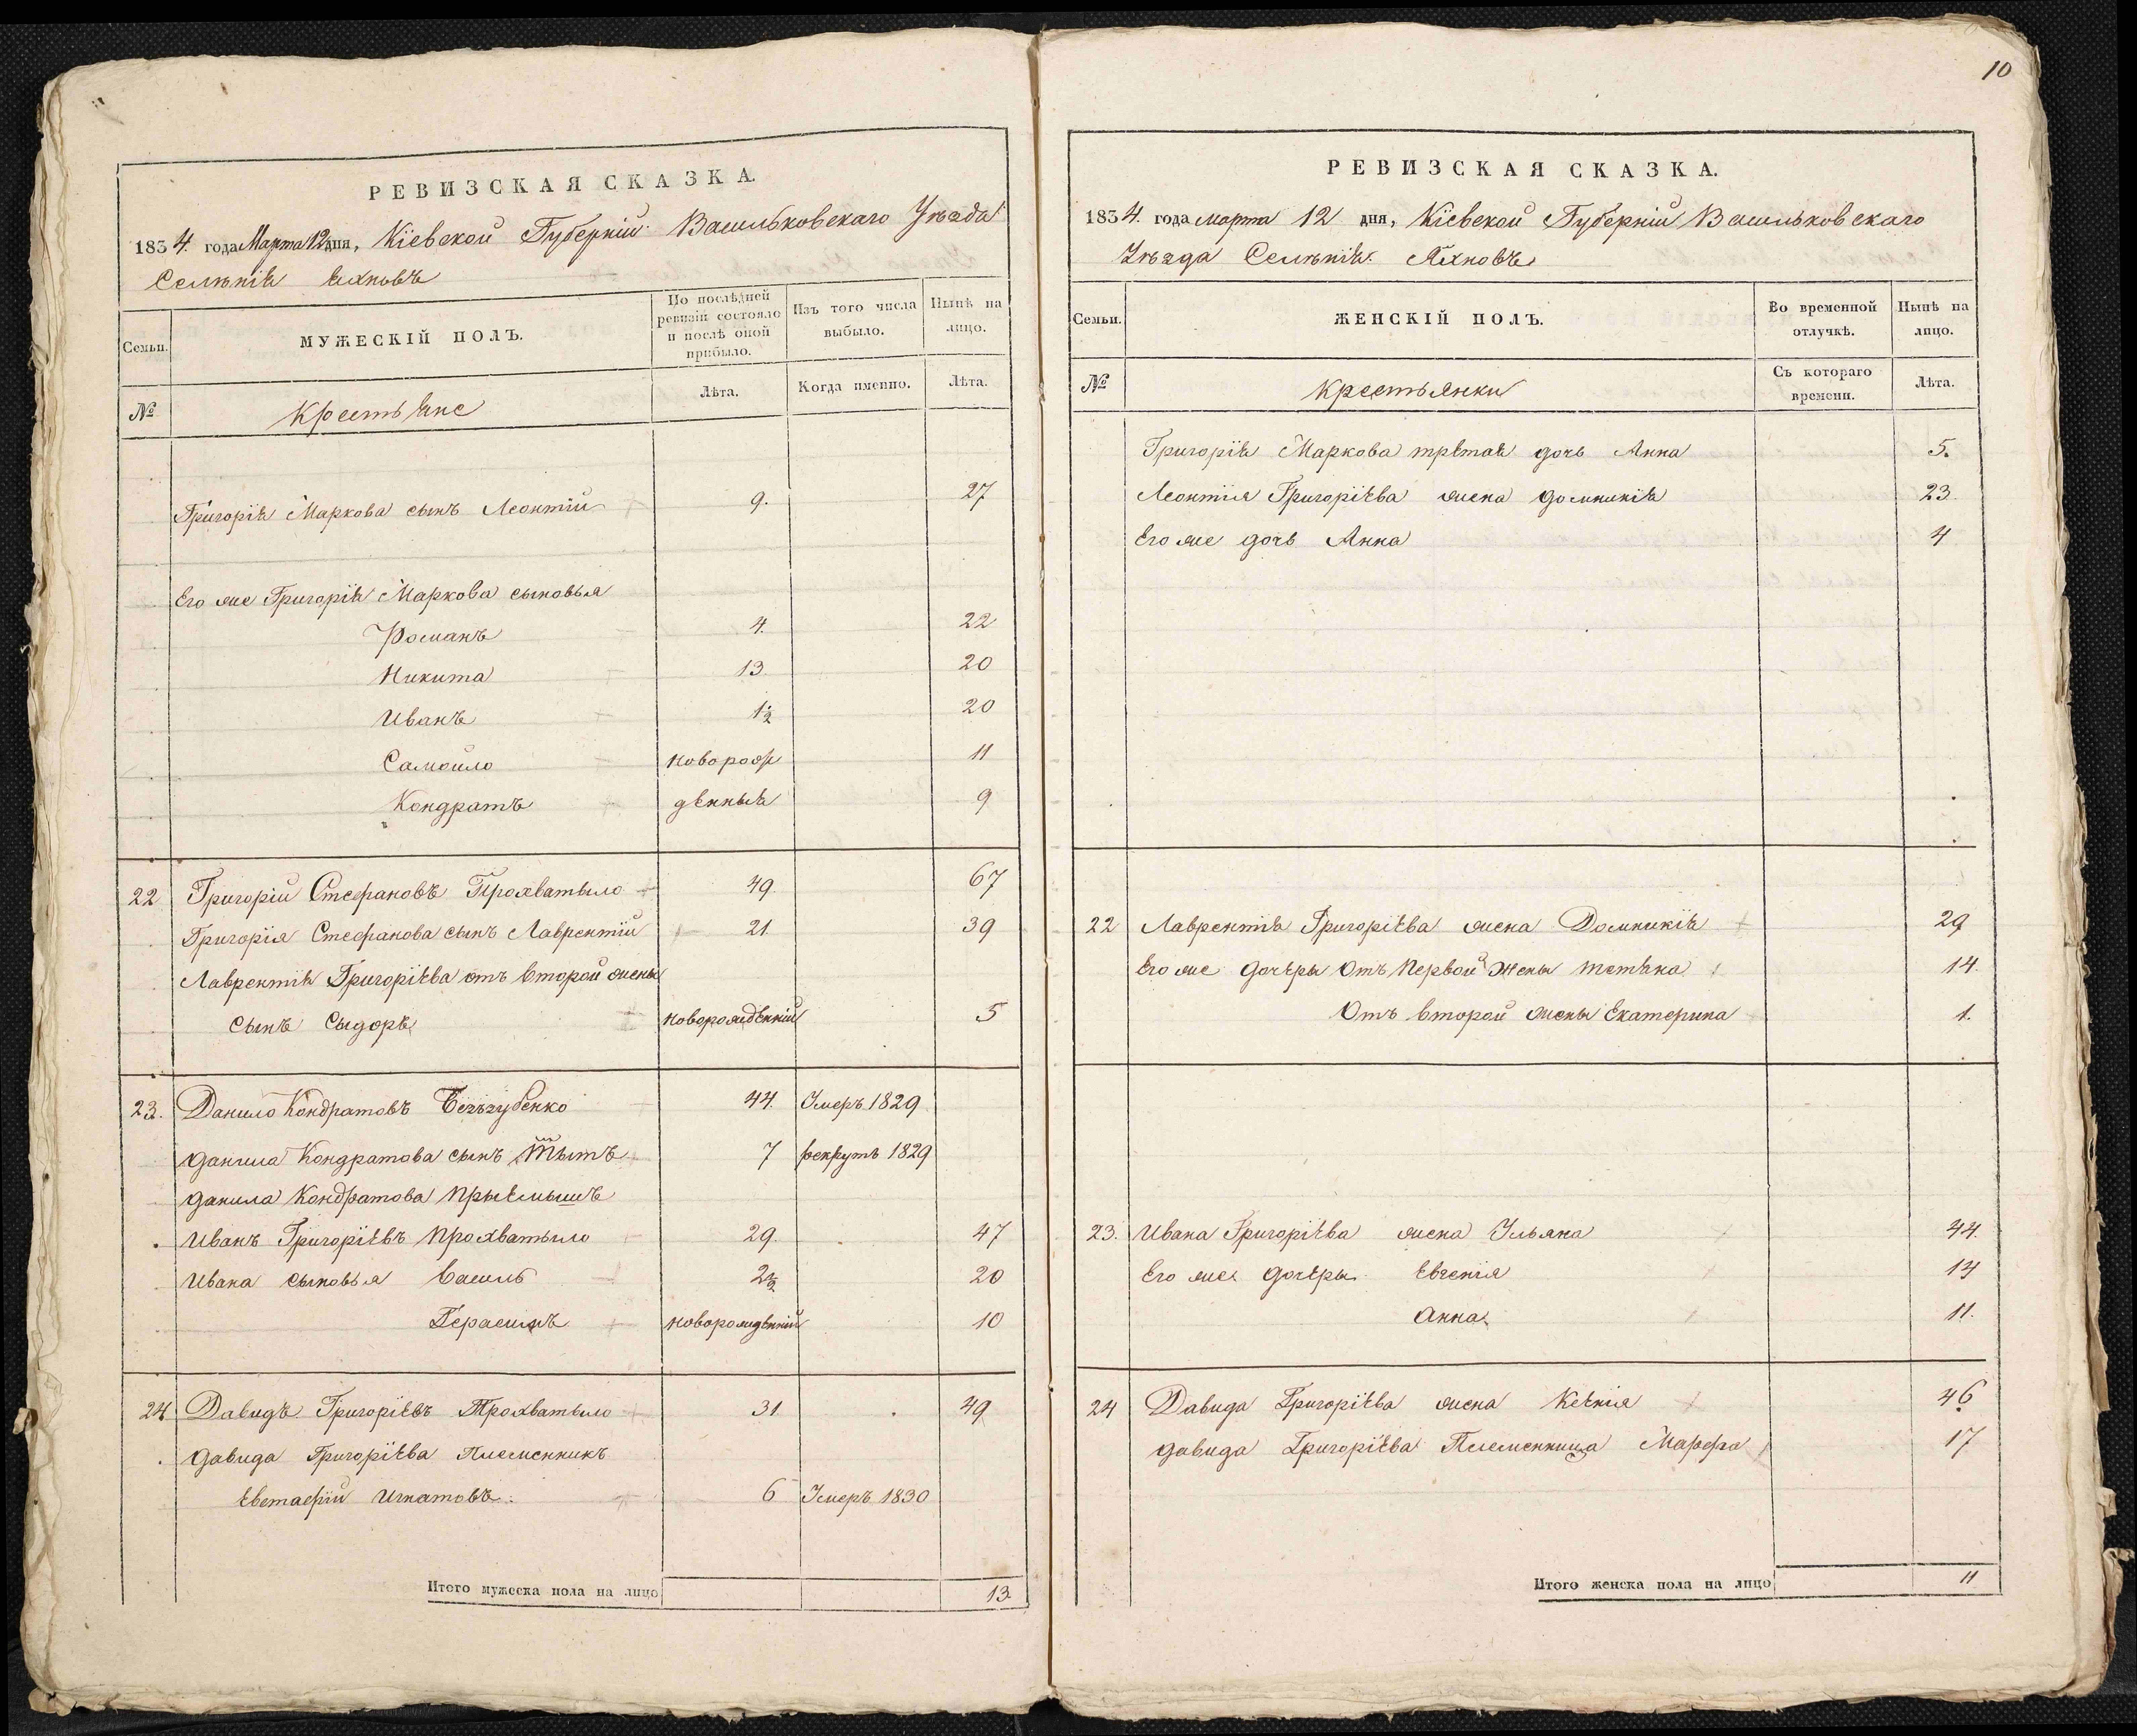 РЕВИЗСКАЯ СКАЗКА.
1834. года Марта 12 дня, Кіевской Губерніи Васильковскаго Уѣзда
Селѣнія Яхновъ
Семьи. МУЖЕСКІЙ ПОЛЪ. По послѣдней ревизіи состояло и послѣ оной прибыло. Изъ того числа выбыло. Нынѣ на лицо.
№ Крестьяне Лѣта. Когда именно. Лѣта.
Григорія Маркова сынъ Леонтій 9. 27
Его же Григорія Маркова сыновья
Романъ 4. 22
Никита 13 20
Иванъ 1½ 20
Самойло новорож 11
Кондратъ дѣнныя 9
22 Григорій Стефановъ Прохватыло 49. 67
Григорія Стефанова сынъ Лаврентій 21. 39
Лаврентія Григоріева отъ второй жены
сынъ Сыдоръ новорожденній 5
23. Данило Кондратовъ Безъзубенко 44. Умеръ 1829
Данила Кондратова сынъ Тытъ 7 рекрутъ 1829
Данила Кондратова прыемышъ
Иванъ Григоріевъ Прохватыло 29. 47
Ивана сыновья Василь 2½ 20
Герасимъ новорожденній 10
24 Давидъ Григоріевъ Прохватыло 31 49
Давида Григоріева Племенникъ
Евстафій Игнатовъ. 6 Умеръ 1830
Итого мужеска пола на лицо 13.
10
РЕВИЗСКАЯ СКАЗКА.
1834. года марта 12 дня, Кіевской Губерніи Васильковскаго
Уѣзда Селѣнія Яхновъ
Семьи. ЖЕНСКІЙ ПОЛЪ. Во временной отлучкѣ. Нынѣ на лицо.
№ Крестьянки Съ котораго времени. Лѣта.
Григорія Маркова третая дочь Анна 5.
Леонтія Григоріева жена Домникія 23
Его же дочь Анна 4
22 Лаврентія Григоріева жена Домникія 29
Его же дочеры отъ первой жены Тетяна 14.
Отъ второй жены Екатерина 1.
23. Ивана Григоріева жена Ульяна 44.
Его же дочеры Евгенія 14
Анна 11.
24 Давида Григоріева жена Ксенія 46
Давида Григоріева Племенница Марфа 17
Итого женска пола на лицо 11